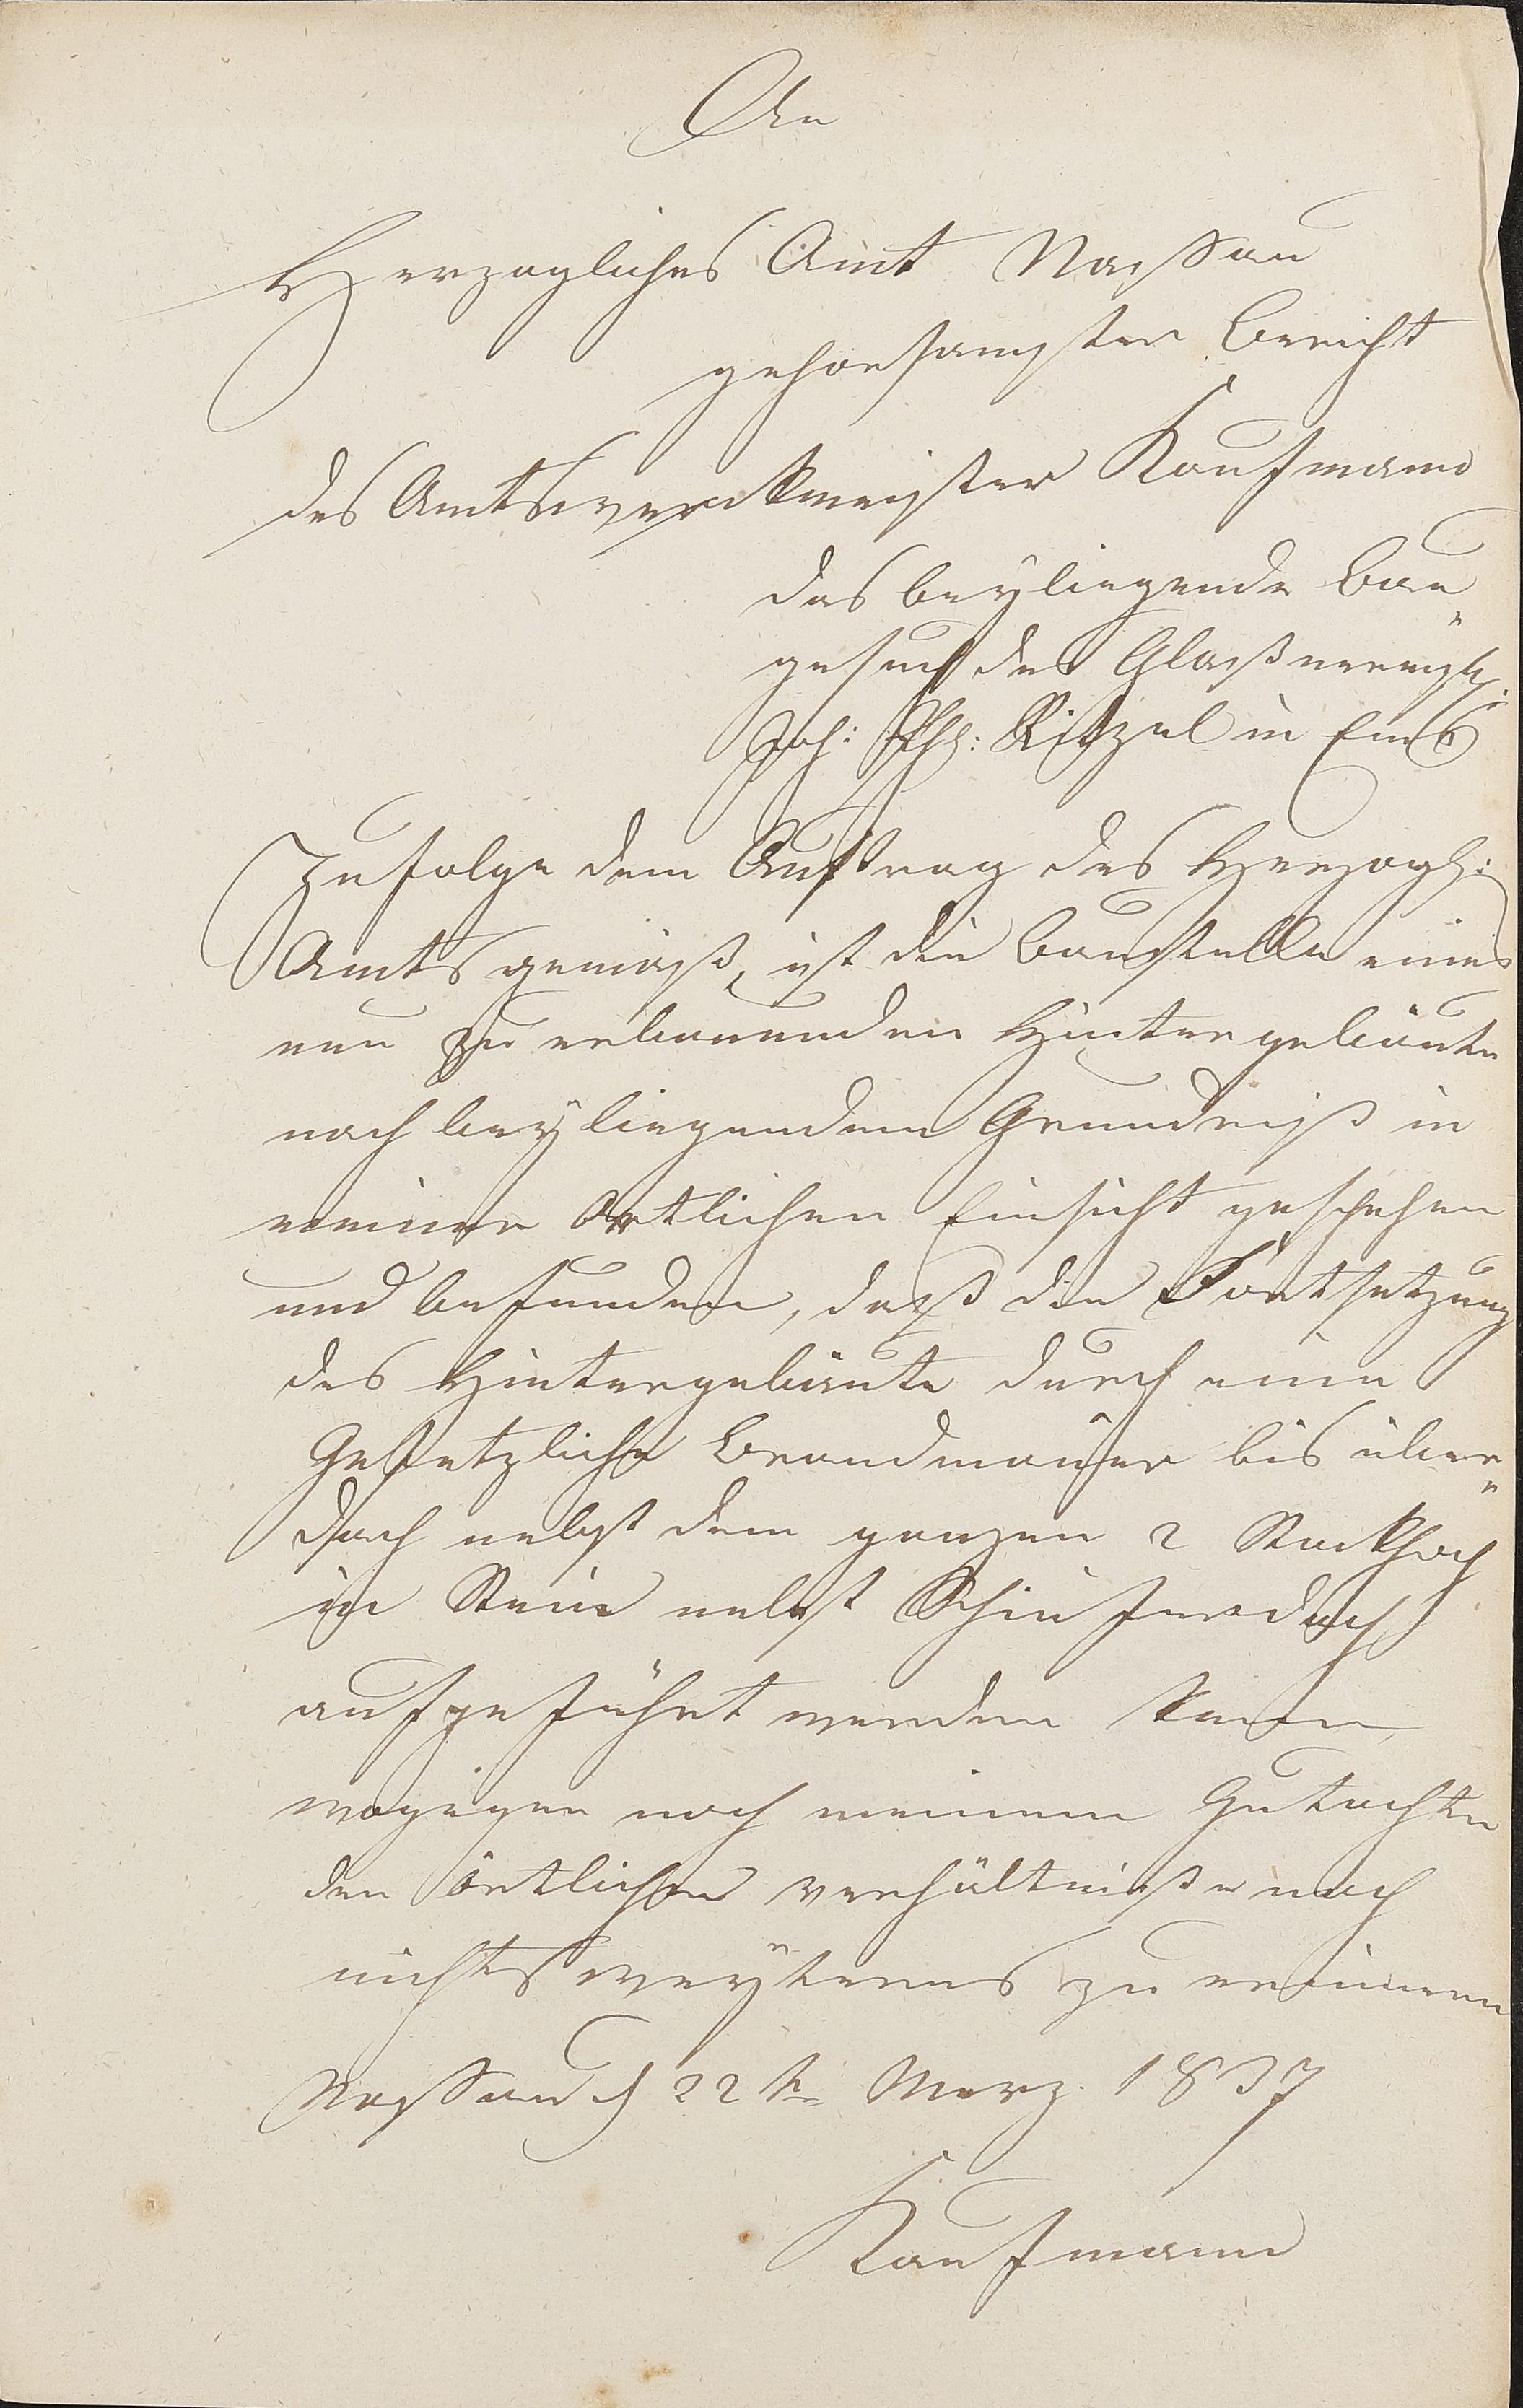 An
Herzogliches Amt Nassau
gehorsamster Bericht
des Amtswerckmeister Kaufmann
das beyliegende Bau„
gesuch des
Joh: Phl: Ritzel in Ems
Zufolge dem Auftrag des Herzogl:
Amts gemäß, ist die Baustelle eines
neu zu erbauenden Hintergebäute
nach beyliegendem Grundriß in
meiner örtlichen Einsicht geschehen
und befunden, daß die Fortsetzung
des Hintergebäute durch eine
Gesetzliche Brandmauer bis über„
dach nebst dem ganzen 2 Stockhoch
in Stein nebst Schieferdach
aufgeführt werden kann,
wogegen nach meinem Gutachten
den örtlichen verhältniße nach
nichts weyteres zu erinnern
Nassau d 22te Merz 1837
Kaufmann